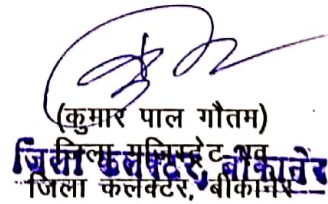 (कुमार पाल गौतम)
जिला मजिस्ट्रेट एवं
जिला कलेक्टर, बीकानेर
जिला कलेक्टर, बीकानेर